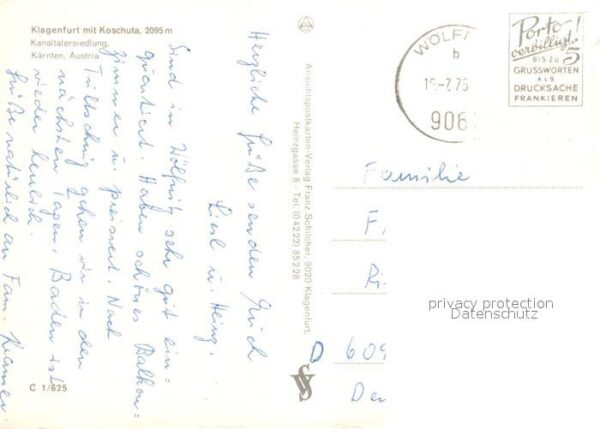 Klagenfurt mit Koschuta, 2095 m
Kanaltalersiedlung,
Kärnten, Austria
Herzliche Grüße senden Euch
Liesl u. Heinz.
Sind in Wölfnitz sehr gut ein=
quartiert. Haben schönes Balkon=
zimmer u. preiswert. Nach
gehen wir in den
nächsten Tagen. Baden ist
wieder herrlich.
Grüße natürlich an Fam. Kramer
C 1/625
Ansichtspostkarten-Verlag Franz Schilcher, 9020 Klagenfurt,
Heinzgasse 8 - Tel. (04222) 85228
VS
WÖLFN
b
-7.75
906
Porto
verbilligt!
BIS ZU 5
GRUSSWORTEN
ALS
DRUCKSACHE
FRANKIEREN
Familie
F.
D 609
privacy protection
Datenschutz